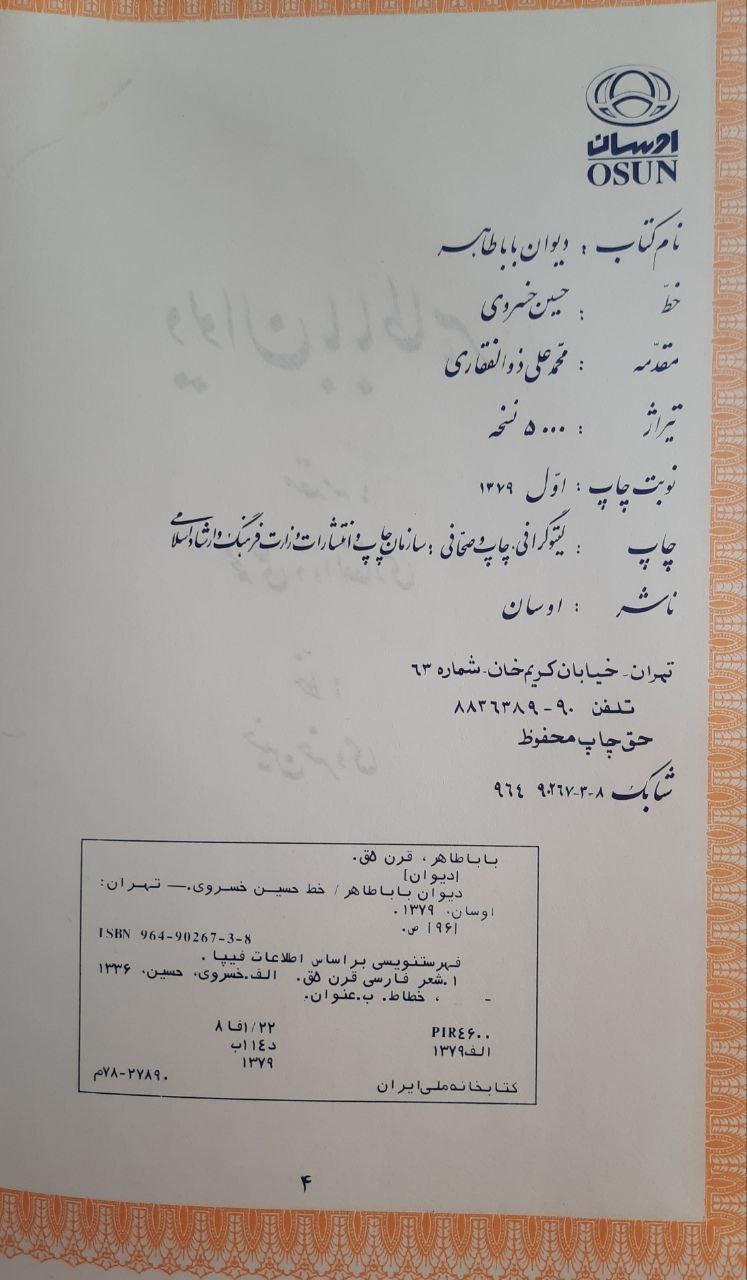 اوسان
OSUN
نام کتاب : دیوان باباطاهر
خطّ : حسین خسروی
مقدّمه : محمّدعلی ذوالفقاری
تیراژ : ۵۰۰۰ نسخه
نوبت چاپ : اوّل ۱۳۷۹
چاپ : لیتوگرافی، چاپ و صحّافی : سازمان چاپ و انتشارات وزارت فرهنگ و ارشاد اسلامی
ناشر : اوسان
تهران - خیابان کریم‌خان - شماره ۶۳
تلفن ۹۰ - ۸۸۳۶۳۸۹
حق چاپ محفوظ
شابک ۸-۳-۹۰۲۶۷ ۹۶۴
باباطاهر، قرن ۵ق.
[دیوان]
دیوان باباطاهر / خط حسین خسروی.— تهران:
اوسان، ۱۳۷۹.
[۹۶] ص.
ISBN 964-90267-3-8
فهرستنویسی براساس اطلاعات فیپا.
۱.شعر فارسی قرن ۵ق. الف.خسروی، حسین، ۱۳۳۶
- ، خطاط. ب.عنوان.
PIR۴۶۰۰ ۸فا۱/۲۲
الف۱۳۷۹ د۱۴اب
۱۳۷۹
کتابخانه ملی ایران ۷۸-۲۷۸۹۰م
۴